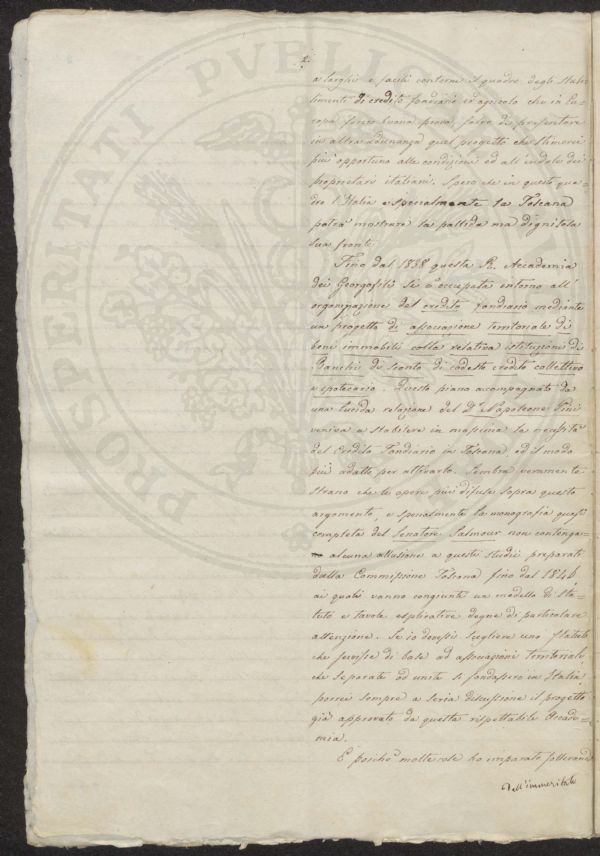 2.
a larghi e facili contorni il quadro degli Stabi-
limenti di credito fondiario ed agricolo che in Eu-
ropa fecero buona prova, salvo di presentare
in altra Adunanza quel progetto che stimerei
più opportuno alle condizioni ed all'indole dei
proprietari italiani. Spero che in questo qua-
dro l'Italia e specialmente la Toscana
potrà mostrare la pallida ma dignitosa
sua fronte.
Fino dal 1838 questa R. Accademia
dei Georgofili si è occupata intorno all'
organizzazione del credito fondiario mediante
un progetto di associazione territoriale di
beni immobili colla relativa istituzione di
Banchi di sconto di codesto credito collettivo
e ipotecario. Questo piano accompagnato da
una lucida relazione del Dr. Napoleone Pini
veniva a stabilire in massima la necessità
del Credito Fondiario in Toscana, ed il modo
più adatto per attivarlo. Sembra veramente
strano che le opere più difuse sopra questo
argomento, e specialmente la monografia quasi
completa del Senatore Salmour non contenga-
no alcuna allusione a questi studii preparati
dalla Commissione Toscana fino dal 1846,
ai quali vanno congiunte un modello di Sta-
tuto e tavole esplicative degne di particolare
attenzione. Se io dovessi scegliere uno Statuto
che servisse di base ad associazioni territoriali,
che separate od unite si fondassero in Italia,
porrei sempre a seria discussione il progetto
già approvato da questa rispettabile Accade-
mia.
E poichè molte cose ho imparato
dell'immeritata